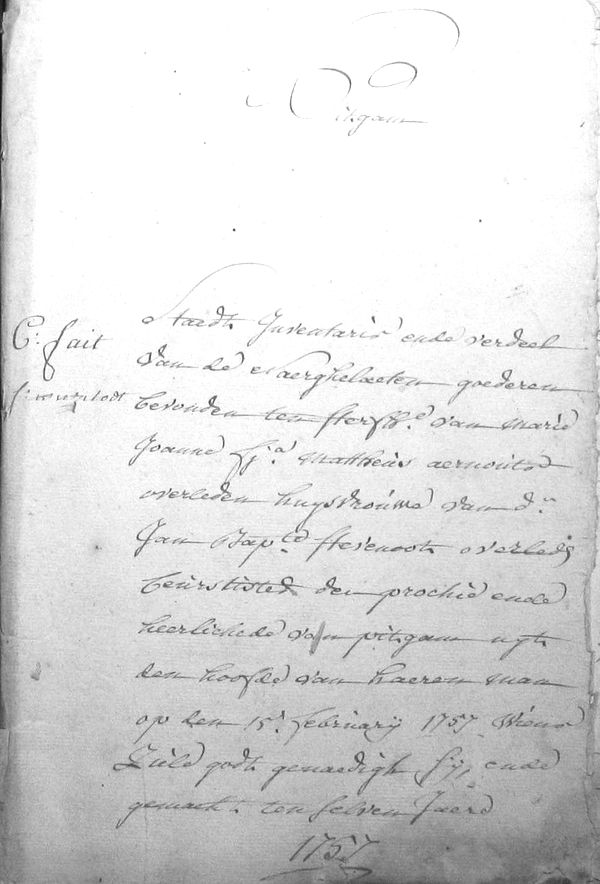 Pitgam
C: fait
Staedt Inventaris ende verdeel
van de naerghelaeten goederen
bevonden ten sterfh.e van Marie
Joanne f.a Mattheus aernouts
overleden huysvrouwe van d.n
Jan Bap.te stevenoot overleds
den prochie ende
heerlichede van pitgam uyt
den hoofde van haeren man
op den 15.e february 1757 Wiens
Ziele godt genaedigh sy, ende
gemaekt ten selven Jaere
1757